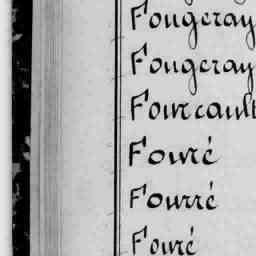 Fougeray
Fougeray
Fourcault
Fouré
Fourré
Fouré